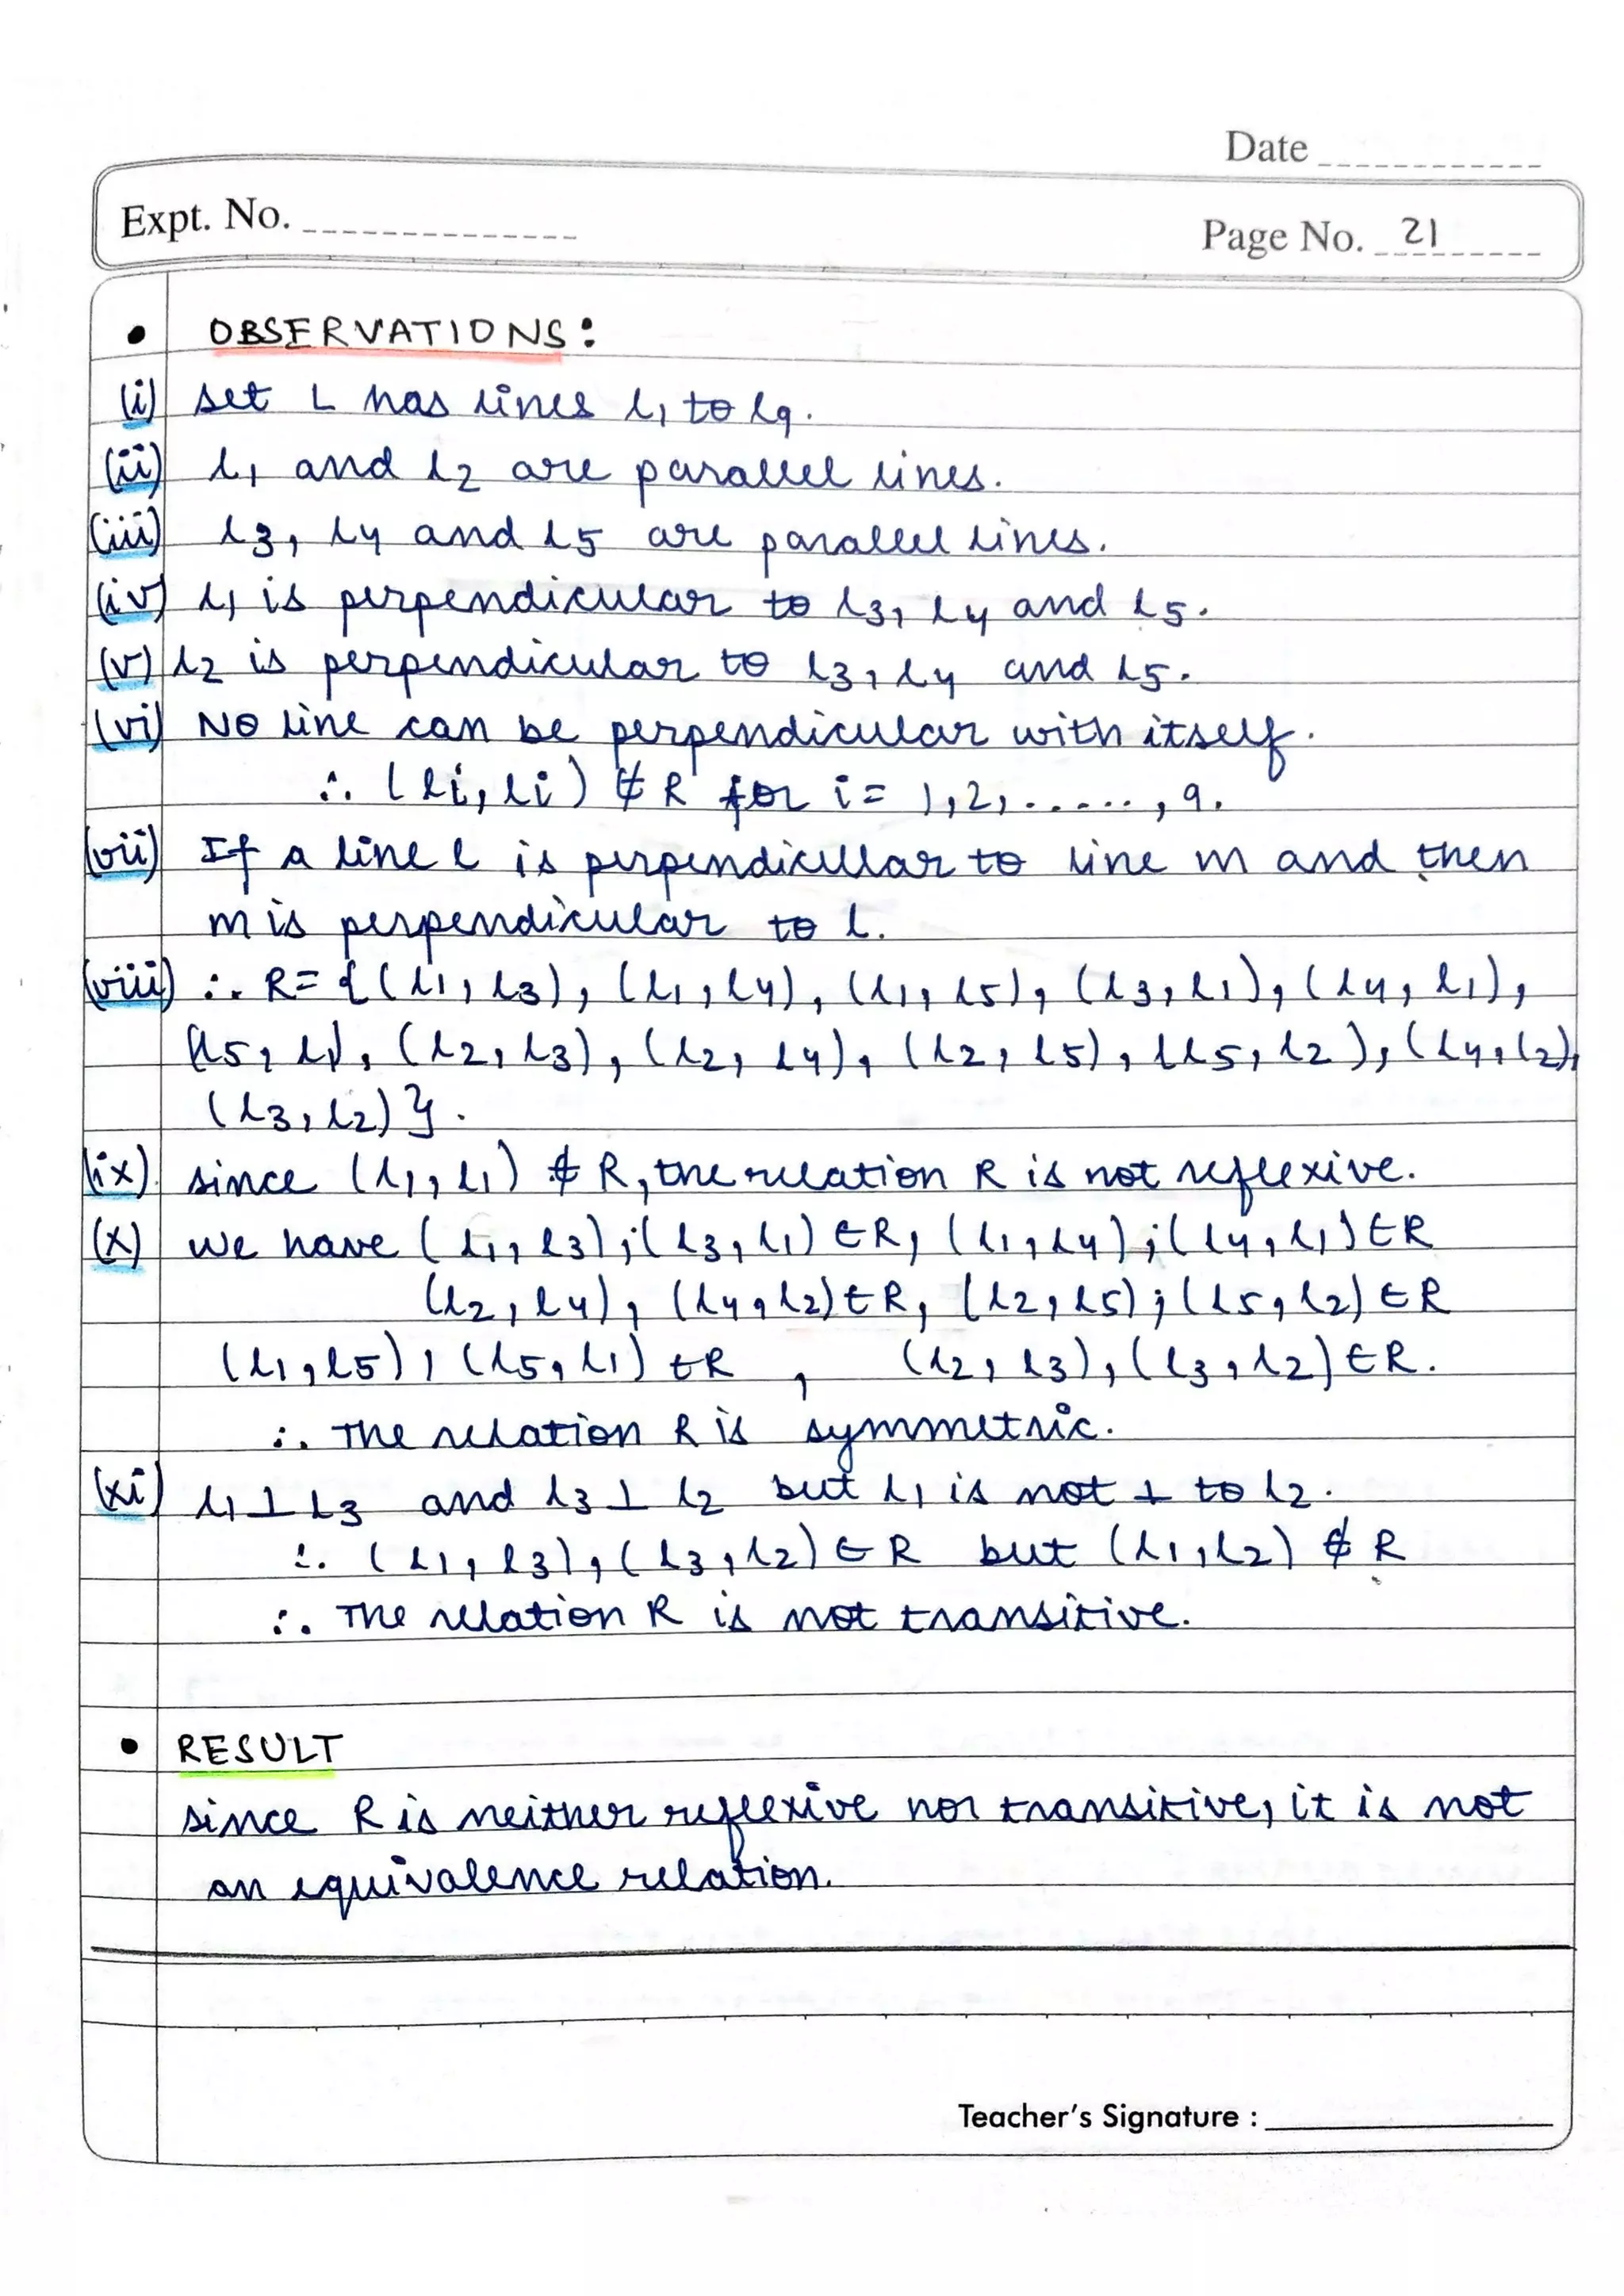 Date
Expt. No.
Page No. 21
• OBSERVATIONS:
(i) Set L has lines l1 to l9.
(ii) l1 and l2 are parallel lines.
(iii) l3, l4 and l5 are parallel lines.
(iv) l1 is perpendicular to l3, l4 and l5.
(v) l2 is perpendicular to l3, l4 and l5.
(vi) No line can be perpendicular with itself.
∴ (li, li) ∉ R for i = 1,2, ....., 9.
(vii) If a line l is perpendicular to line m and then
m is perpendicular to l.
(viii) ∴ R= {(l1, l3), (l1, l4), (l1, l5), (l3, l1), (l4, l1),
(l5, l1), (l2, l3), (l2, l4), (l2, l5), (l5, l2), (l4, l2),
(l3, l2)}.
(ix) since (l1, l1) ∉ R, the relation R is not reflexive.
(x) we have (l1, l3);(l3, l1) ∈R, (l1, l4);(l4, l1) ∈R
(l2, l4), (l4, l2) ∈R, (l2, l5);(l5, l2) ∈R
(l1, l5), (l5, l1) ∈R , (l2, l3), (l3, l2) ∈R.
∴ The relation R is symmetric.
(xi) l1 ⊥ l3 and l3 ⊥ l2 but l1 is not ⊥ to l2.
∴ (l1, l3), (l3, l2) ∈ R but (l1, l2) ∉ R
∴ The relation R is not transitive.
• RESULT
since R is neither reflexive nor transitive, it is not
an equivalence relation.
Teacher's Signature :